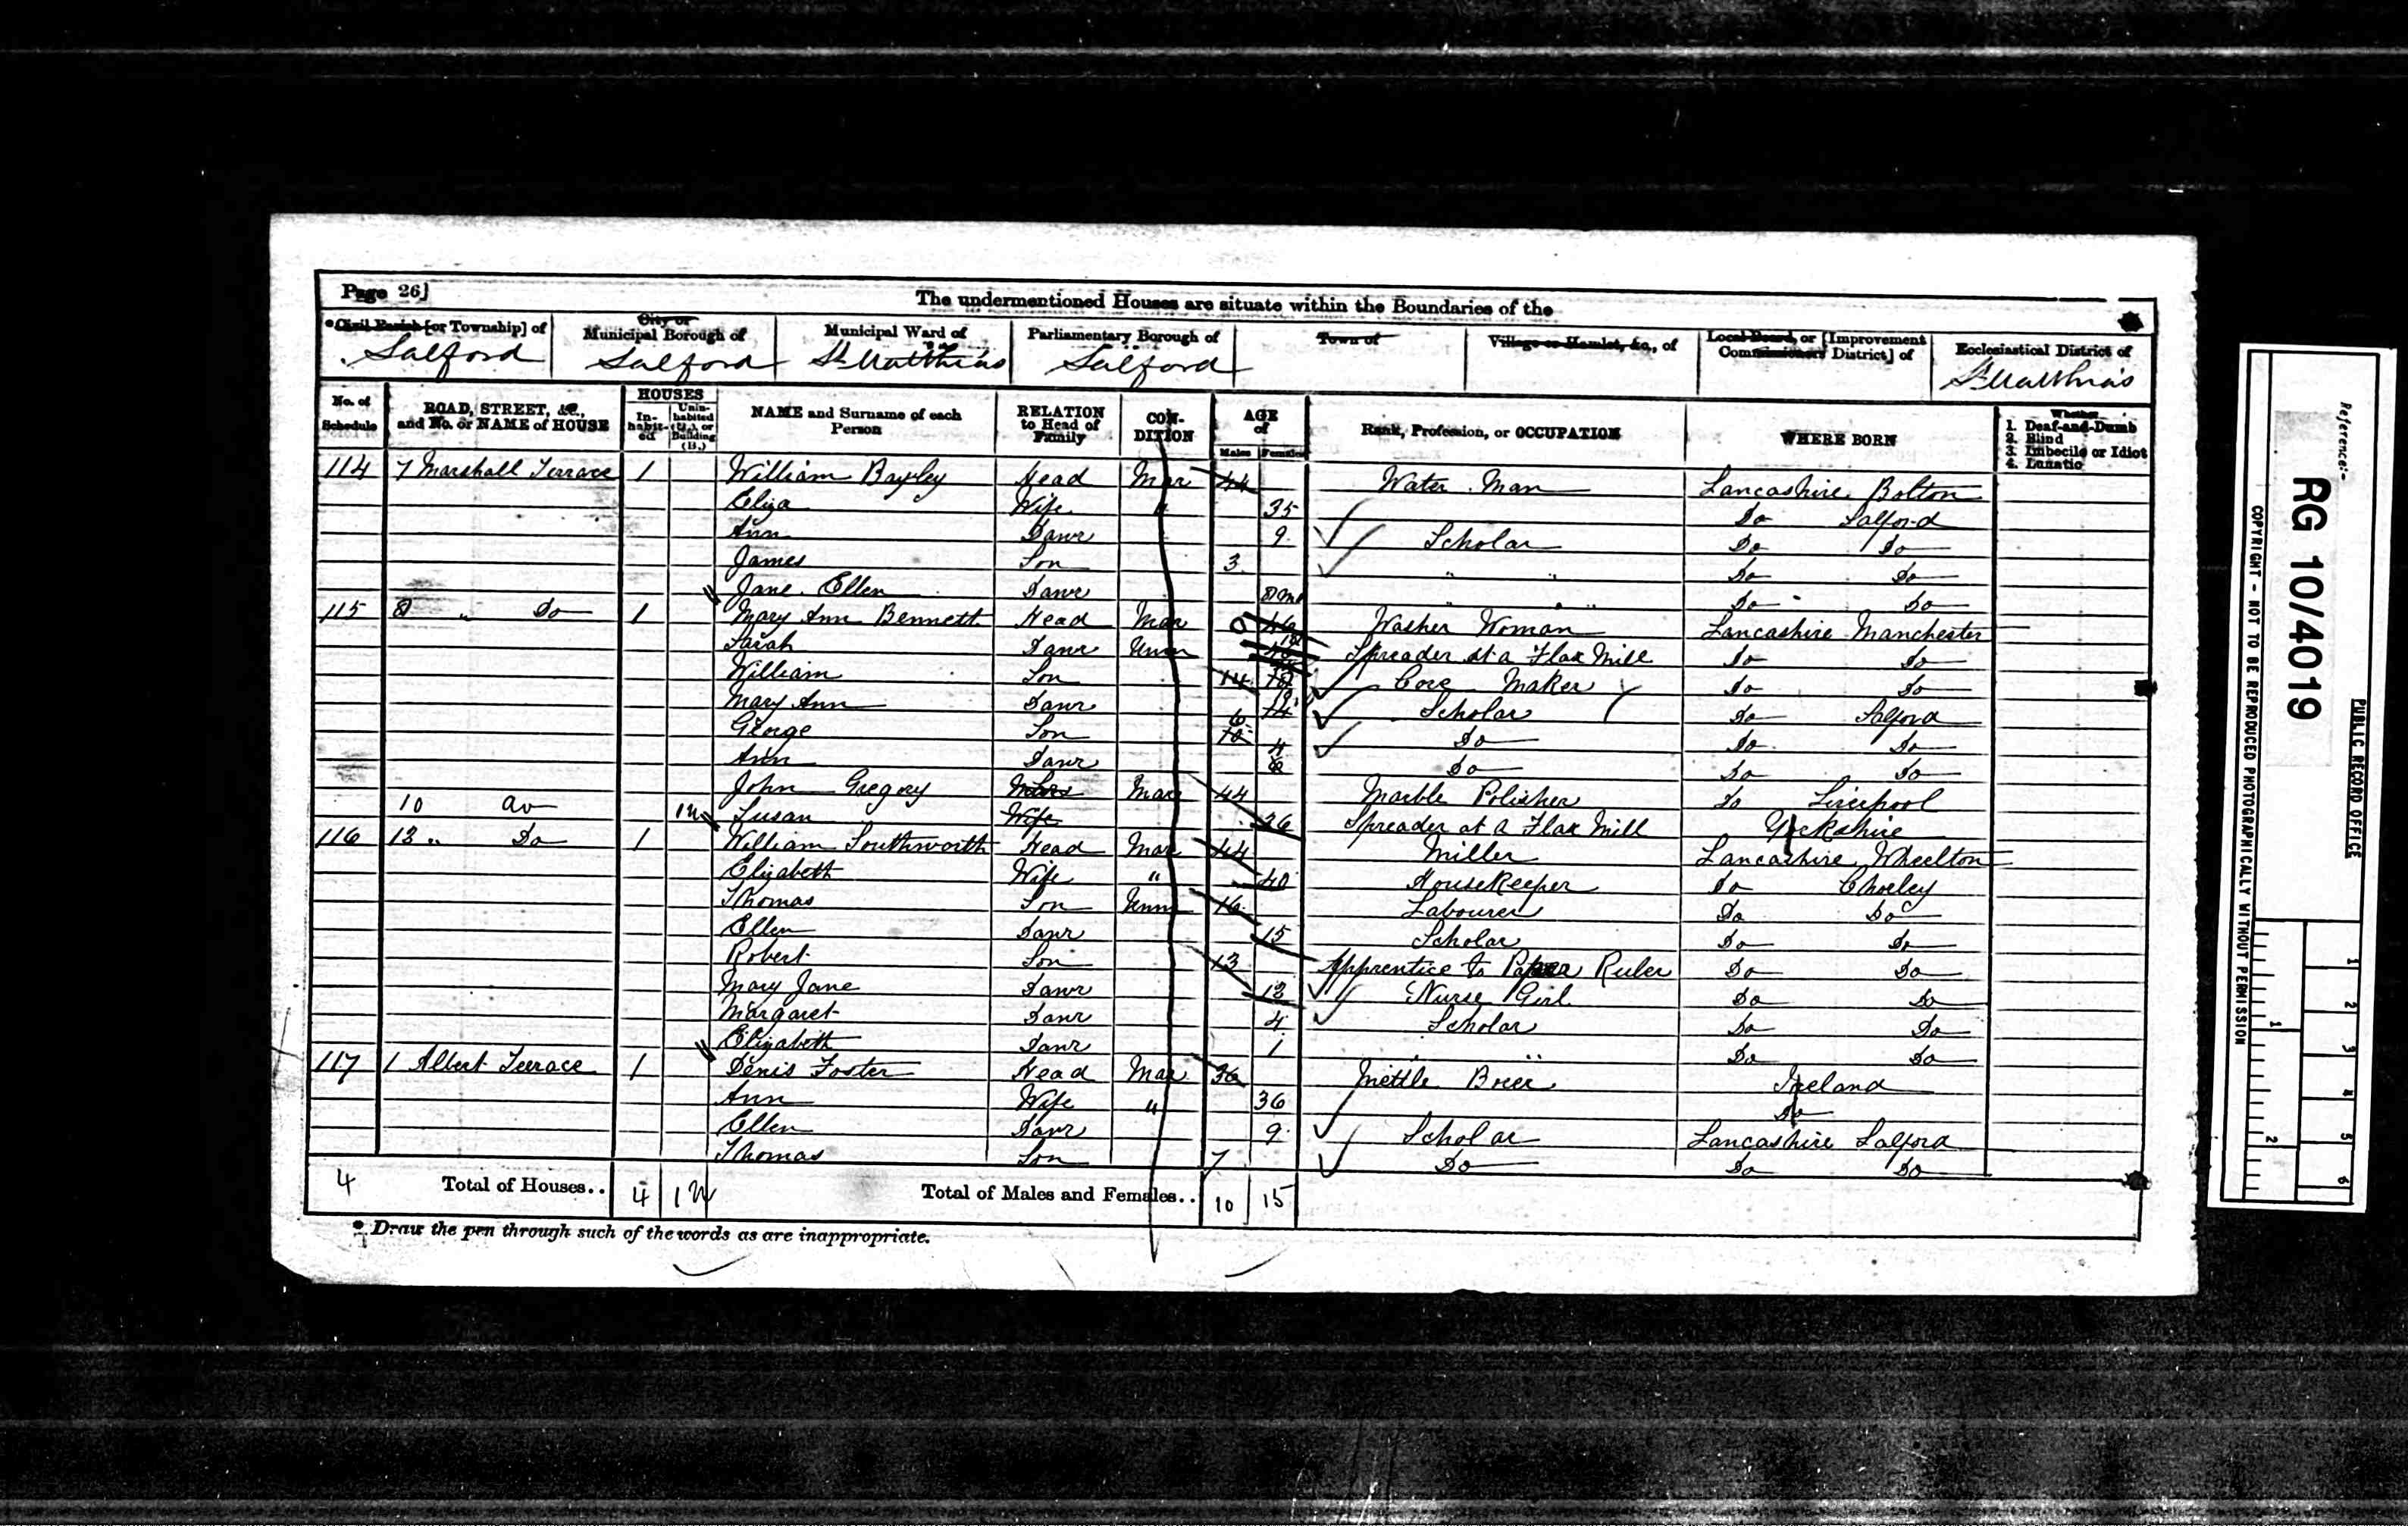 Page 26]
The undermentioned Houses are situate within the Boundaries of the
*Civil Parish [or Township] of
City or Municipal Borough of
Municipal Ward of
Parliamentary Borough of
Town of
Village or Hamlet, &c., of
Local Board, or [Improvement Commissioners District] of
Ecclesiastical District of
Salford Salford St Matthias Salford St Matthias
No. of Schedule
ROAD, STREET, &c., and No. or NAME of HOUSE
HOUSES
Inhabited
Uninhabited (U.), or Building (B.)
NAME and Surname of each Person
RELATION to Head of Family
CONDITION
AGE of
Males Females
Rank, Profession, or OCCUPATION
WHERE BORN
Whether
1. Deaf-and-Dumb
2. Blind
3. Imbecile or Idiot
4. Lunatic
114 7 Marshall Terrace 1 William Bayley Head Mar 44 Water Man Lancashire Bolton
Eliza Wife " 35 Do Salford
Ann Daur 9 Scholar Do Do
James Son 3 " " Do Do
Jane Ellen Daur 8 mo " " " Do Do
115 8 " Do 1 Mary Ann Bennett Head Mar 46 Washer Woman Lancashire Manchester
Sarah Daur Unm 18 Spreader at a Flax Mill Do Do
William Son 14 Core Maker Do Do
Mary Ann Daur Scholar Do Salford
George Son 6 10 Do Do Do
Ann Daur 4 6 Do Do Do
John Gregory Mar 44 Marble Polisher Do Liverpool
10 Do 1U Susan Wife 36 Spreader at a Flax Mill Yorkshire
116 13 " Do 1 William Southworth Head Mar 44 Miller Lancashire Wheelton
Elizabeth Wife " 40 Housekeeper Do Chorley
Thomas Son Unm 16 Labourer Do Do
Ellen Daur 15 Scholar Do Do
Robert Son 13 Apprentice to Paper Ruler Do Do
Mary Jane Daur 12 Nurse Girl Do Do
Margaret Daur 4 Scholar Do Do
Elizabeth Daur 1 " " Do Do
117 1 Albert Terrace 1 Denis Foster Head Mar 36 Mettle Borer Ireland
Ann Wife " 36 Do
Ellen Daur 9 Scholar Lancashire Salford
Thomas Son 7 Do Do Do
4 Total of Houses.. 4 1U Total of Males and Females.. 10 15
* Draw the pen through such of the words as are inappropriate.
Reference:-
RG 10/4019
PUBLIC RECORD OFFICE
COPYRIGHT - NOT TO BE REPRODUCED PHOTOGRAPHICALLY WITHOUT PERMISSION
1 2 3 4 5 6
1 2